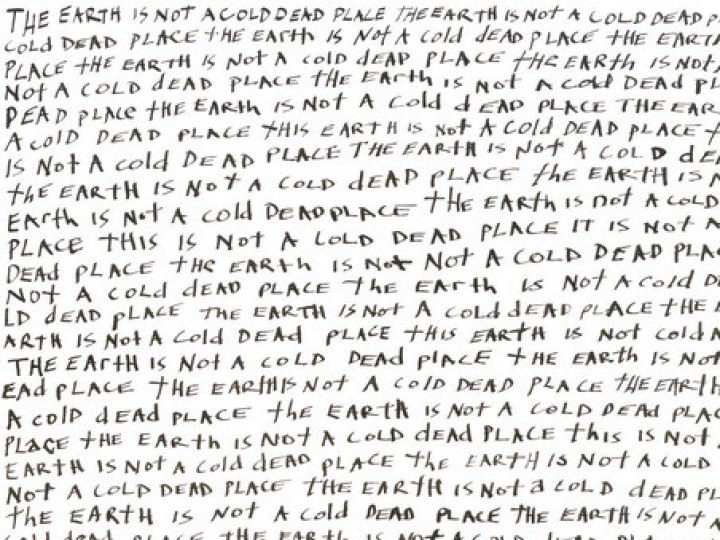 THE EARTH IS NOT A COLD DEAD PLACE THE EARTH IS NOT A COLD DEAD
COLD DEAD PLACE tHE EARth IS NOt A cold dEAD PLACE THE EARTH
PLACE tHE EARTH IS Not A cold dEAD PLACE tHE EARtH IS NOt
NOt A COLD dEAD PLACE tHE EARth IS Not A cold DEAD
DEAD pLACE tHE EARth IS Not A Cold dEAD PLACE THE EAR
A colD DEAD PLACE tHIS EARTH IS Not A Cold DEAD PLACE
IS Not A cold DEAD PLACE THE EARTH IS Not A COLD dE
tHE EARTH IS NOT A COLD dEAD PLACE thE EARTH IS
EARth IS Not A cold DEAD PLACE tHE EARTH IS not A COLD
PLACE tHIS IS Not A COLD DEAD PLACE IT IS NOT A
DEAd PLACE tHE EARth IS Not Not A COLD DEAD PLA
NOt A cold dEAD PLACE the EARth IS Not A cold
LD dEAD pLACE THE EARTH IS Not A cold dEAD pLACE tHE
ARTH IS NOt A Cold DEAd PLACE tHIS EARTH IS Not cold
THE EARtH IS Not A cOLD DEAd PlACE tHE EARth IS Not
EAd PLACE THE EARtH IS Not A colD DEAD PLACE THE EARtH
A colD dEAd PLACE thE EARTH IS Not A COLD DEAD PLAC
PLACE tHE EARth IS NOt A COLD dEAd PLACE this IS Not
EARTH IS Not A cold dEAD pLACE thE EARTH IS Not A COLD
NOt A COLD DEAD PLACE THE EARTH IS Not a COLD dEAD PL
thE EARTH IS Not A cold DEAD PLACE tHE EARTH IS Not